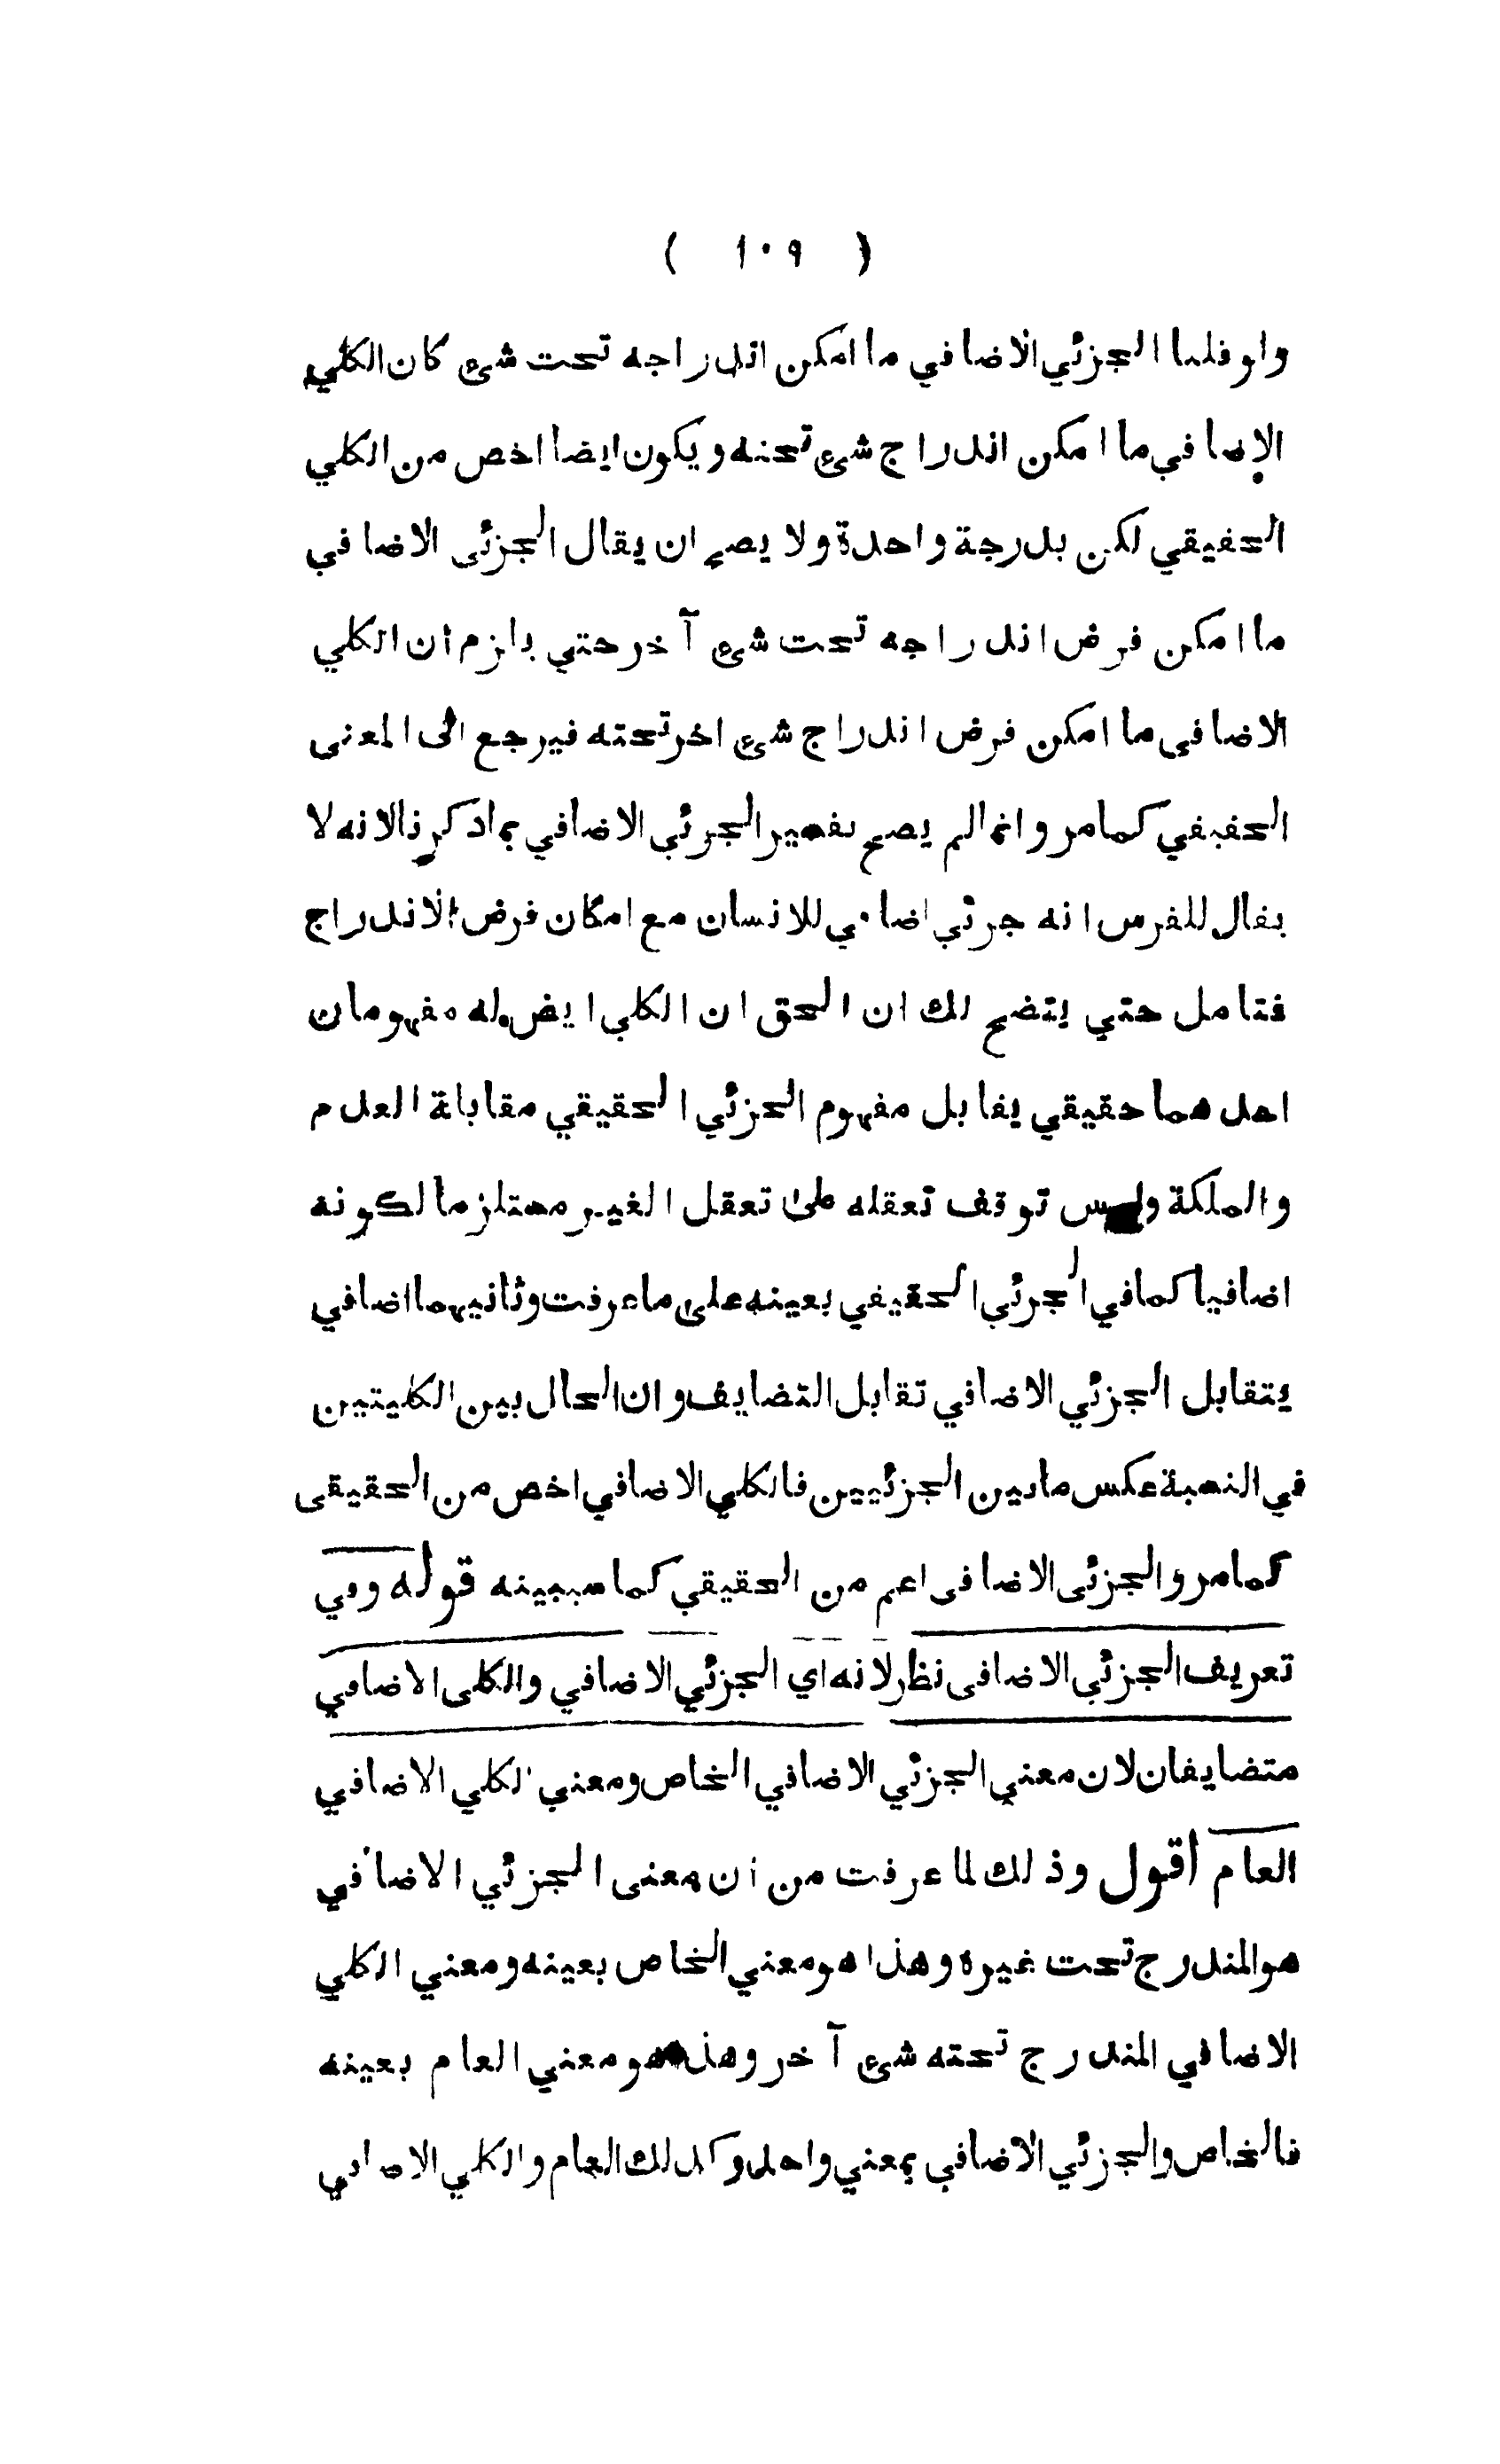 ( ١٠٩ )
ولو قلنا الجزئي الاضافي ما امكن اندراجه تحت شئ كان الكلي
الاضافي ما امكن اندراج شئ تحته ويكون ايضا اخص من الكلي
الحقيقي لكن بدرجة واحدة ولا يصح ان يقال الجزئى الاضافي
ما امكن فرض اندراجه تحت شئ آخر حتي يلزم ان الكلي
الاضافى ما امكن فرض اندراج شئ اخر تحته فيرجع الى المعنى
الحقيقي كمامر وانما لم يصح تفسير الجزئي الاضافي بماذكرنا لانه لا
يقال للفرس انه جزئي اضافي للانسان مع امكان فرض الاندراج
فتامل حتي يتضح لك ان الحق ان الكلي ايض له مفهومان
احدهما حقيقي يقابل مفهوم الجزئي الحقيقي مقابلة العدم
والملكة وليس توقف تعقله على تعقل الغير مستلزما لكونه
اضافيا كمافي الجزئي الحقيقي بعينه على ماعرفت وثانيهما اضافي
يتقابل الجزئي الاضافي تقابل التضايف وان الحال بين الكليتين
في النسبة عكس مابين الجزئيين فالكلي الاضافي اخص من الحقيقى
كمامر والجزئى الاضافى اعم من الحقيقي كما سيبينه قوله وفي
تعريف الجزئي الاضافى نظر لانه اي الجزئي الاضافي والكلى الاضافي
متضايفان لان معني الجزئي الاضافي الخاص ومعني الكلي الاضافي
العام اقول وذلك لما عرفت من ان معنى الجزئي الاضافي
هو المندرج تحت غيره وهذا هو معني الخاص بعينه ومعني الكلي
الاضافي المندرج تحته شئ آخر وهذا هو معني العام بعينه
فالخاص والجزئي الاضافي بمعني واحد وكذلك العام والكلي الاضافي